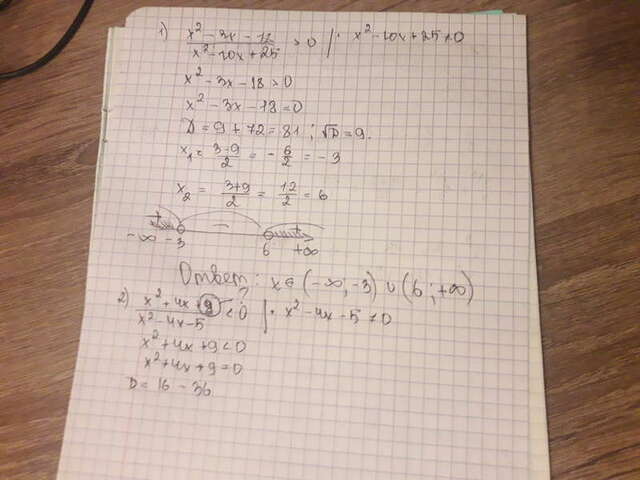 1) x² - 3x - 18 / x² - 10x + 25 > 0 | · x² - 10x + 25 ≠ 0
x² - 3x - 18 > 0
x² - 3x - 18 = 0
D = 9 + 72 = 81; √D = 9.
x₁ = 3-9 / 2 = - 6/2 = -3
x₂ = 3+9 / 2 = 12/2 = 6
+ - +
-∞ -3 6 +∞
Ответ: x ∈ (-∞; -3) ∪ (6; +∞)
2) x² + 4x + 9 / x² - 4x - 5 < 0 | · x² - 4x - 5 ≠ 0
x² + 4x + 9 < 0
x² + 4x + 9 = 0
D = 16 - 36